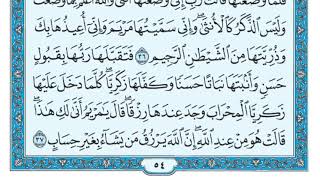 وَلَيْسَ ٱلذَّكَرُ كَٱلْأُنثَىٰ ۖ وَإِنِّي سَمَّيْتُهَا مَرْيَمَ وَإِنِّيٓ أُعِيذُهَا بِكَ
وَذُرِّيَّتَهَا مِنَ ٱلشَّيْطَٰنِ ٱلرَّجِيمِ ٣٦ فَتَقَبَّلَهَا رَبُّهَا بِقَبُولٍ
حَسَنٍ وَأَنۢبَتَهَا نَبَاتًا حَسَنًا وَكَفَّلَهَا زَكَرِيَّا ۖ كُلَّمَا دَخَلَ عَلَيْهَا
زَكَرِيَّا ٱلْمِحْرَابَ وَجَدَ عِندَهَا رِزْقًا ۖ قَالَ يَٰمَرْيَمُ أَنَّىٰ لَكِ هَٰذَا ۖ
قَالَتْ هُوَ مِنْ عِندِ ٱللَّهِ ۖ إِنَّ ٱللَّهَ يَرْزُقُ مَن يَشَآءُ بِغَيْرِ حِسَابٍ ٣٧
٥٤